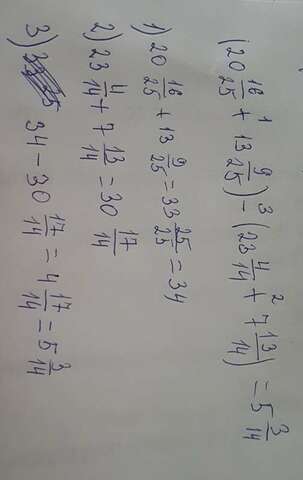 (20 16/25 + 13 9/25) - (23 4/14 + 7 13/14) = 5 3/14
1) 20 16/25 + 13 9/25 = 33 25/25 = 34
2) 23 4/14 + 7 13/14 = 30 17/14
3) 34 - 30 17/14 = 4 17/14 = 5 3/14